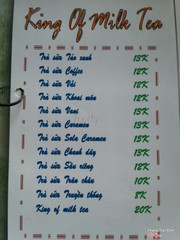 King Of Milk Tea
Trà sữa Táo xanh 13K
Trà sữa Coffee 12K
Trà sữa Vải 12K
Trà sữa Khoai môn 12K
Trà sữa Vani 13K
Trà sữa Caramen 13K
Trà sữa Sôla Caramen 15K
Trà sữa Chanh dây 13K
Trà sữa Sầu riêng 12K
Trà sữa Trân châu 10K
Trà sữa Truyền thống 8K
King of milk tea 20K